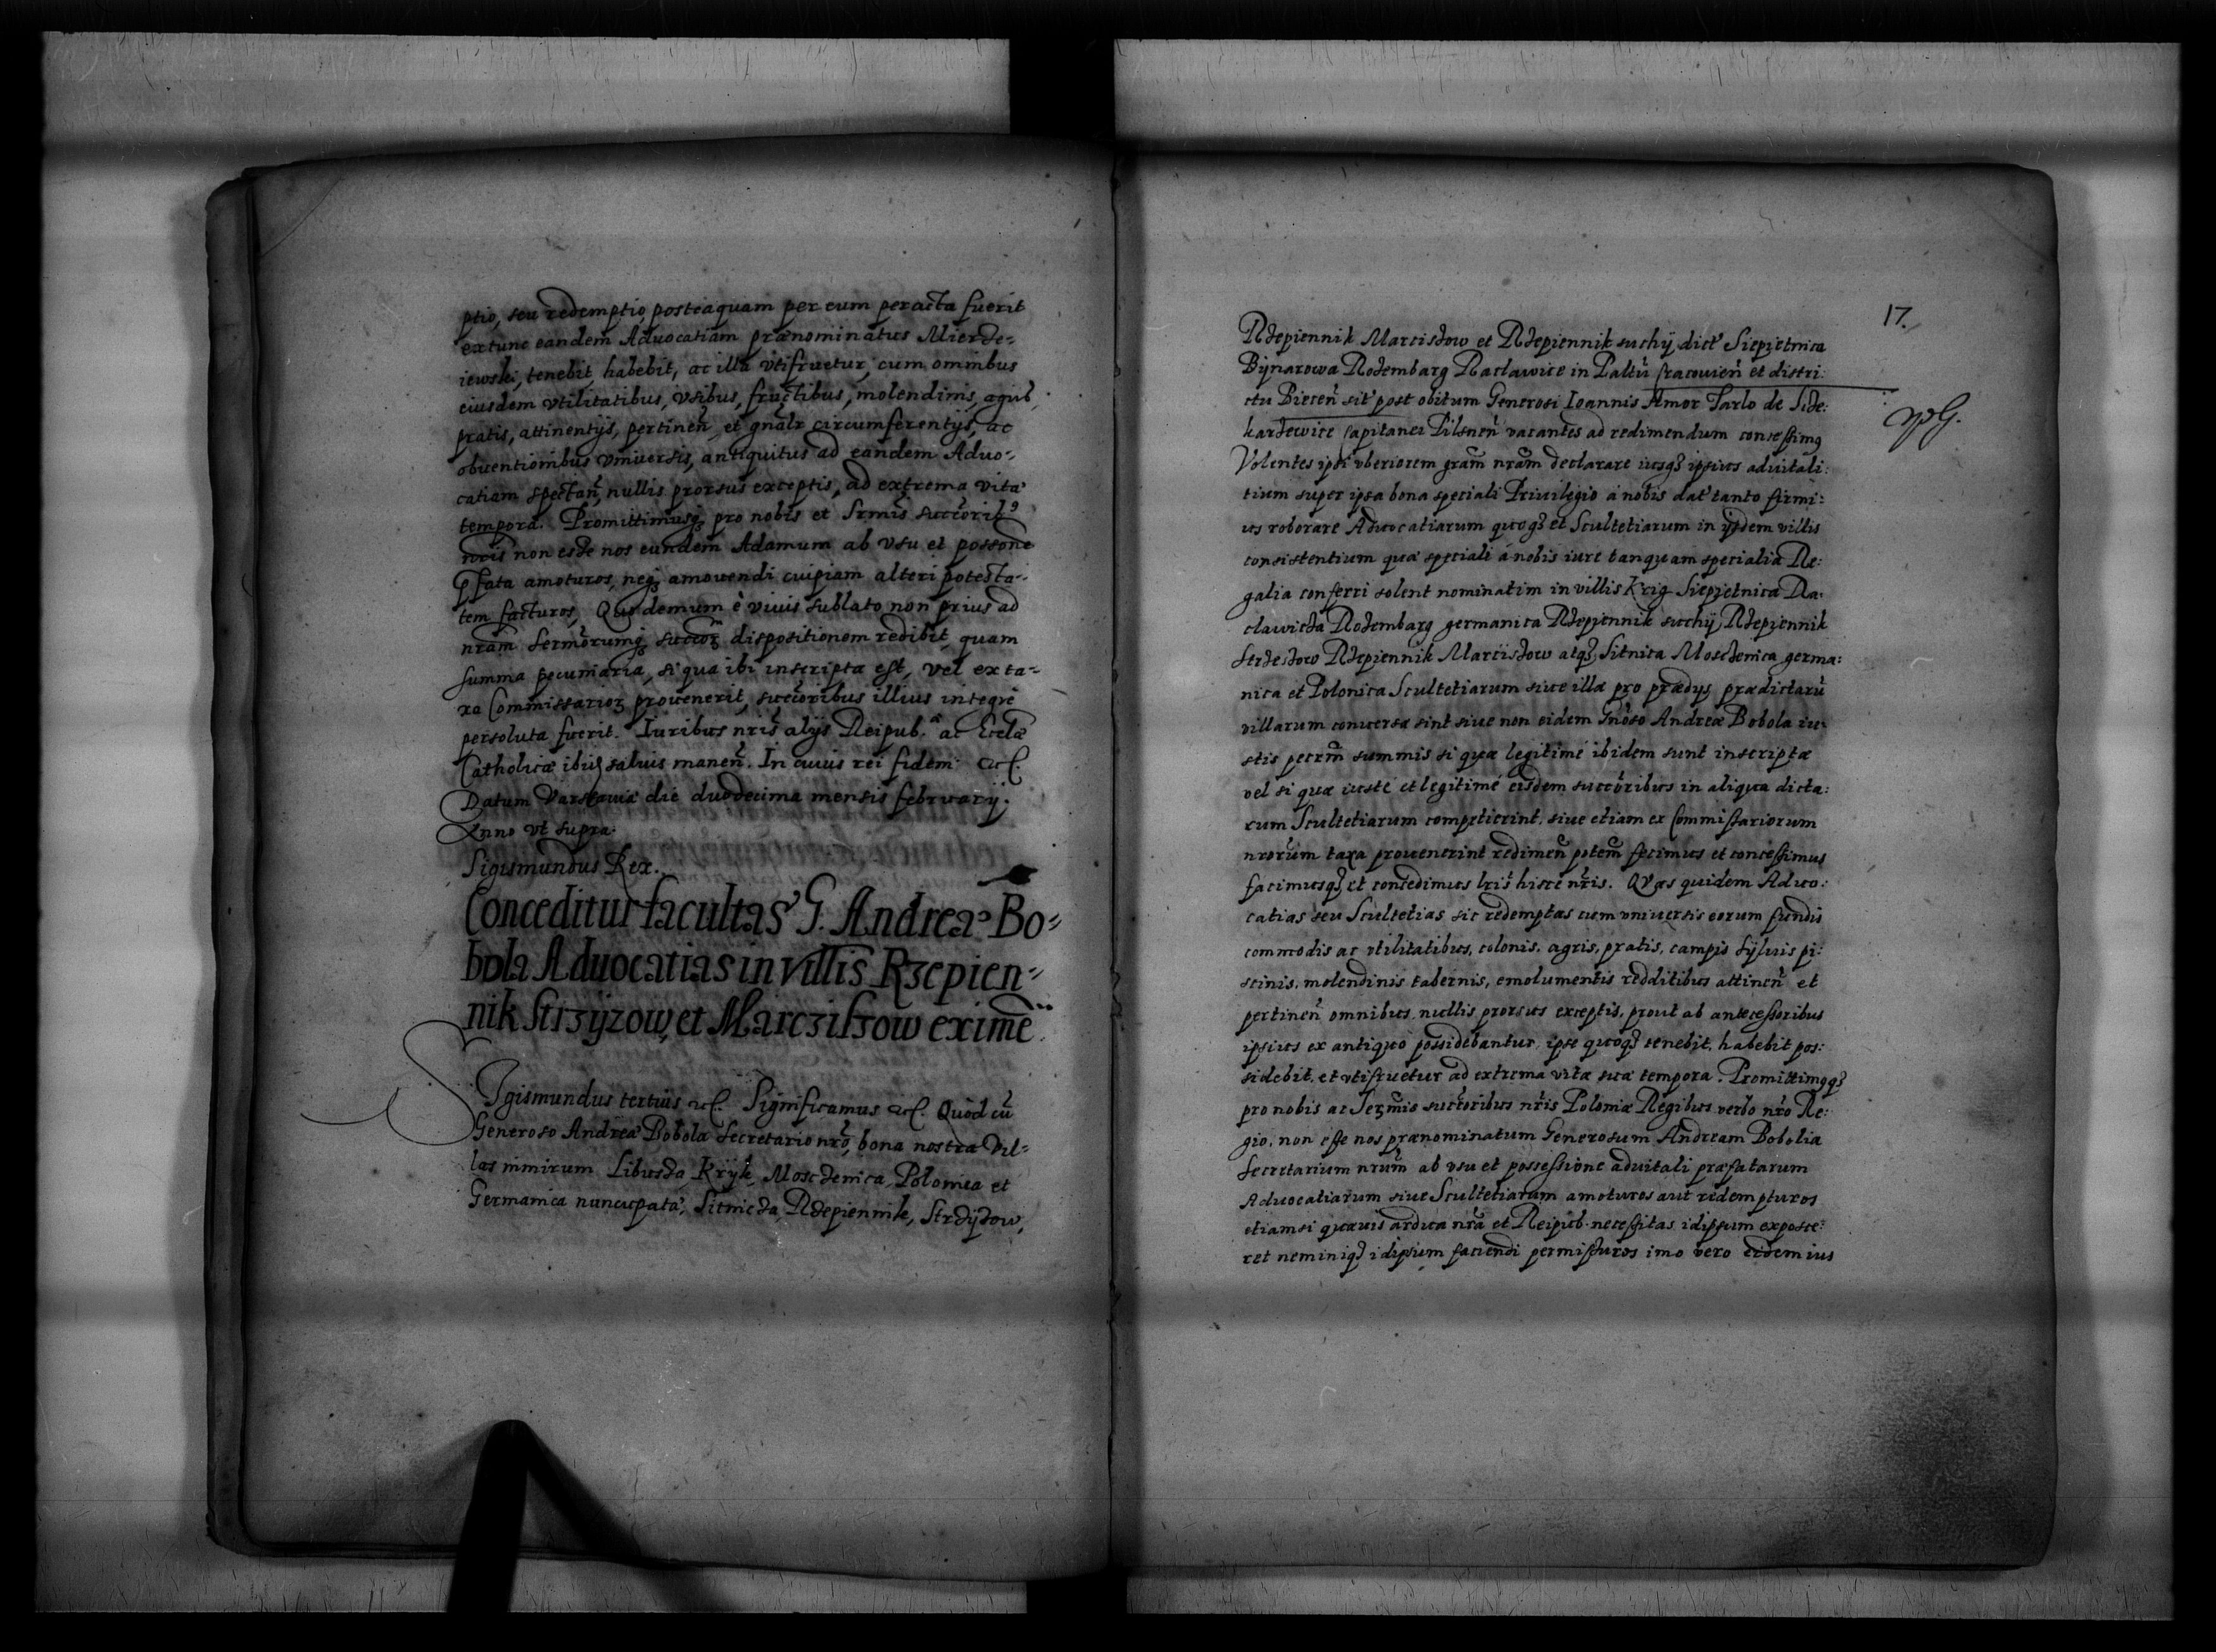 ptio, seu redemptio posteaquam per eum peracta fuerit
extunc eandem Aduocatiam prænominatus Mierze-
iewski, tenebit, habebit, ac illa vtifruetur, cum omnibus
eiusdem vtilitatibus, vsibus, fructibus, molendinis, agris,
pratis, attinentijs, pertinen̄, et gnãlr circumferentijs, ac
obuentionibus vniuersis, antiquitus ad eandem Aduo-
catiam spectan̄, nullis prorsus exceptis, ad extrema vitæ
tempora. Promittimusq3 pro nobis et Srmis succorib9
nris non esse nos eundem Adamum ab vsu et possone
pfata amoturos, neq3 amouendi cuipiam alteri potesta-
tem facturos, Quo demum è viuis sublato non prius ad
nram Sermorumq3 succor dispositionem redibit, quam
summa pecuniaria, si qua ibi inscripta est, vel ex ta-
xa Commissarior prouenerit, succoribus illius integrè
persoluta fuerit. Iuribus nris alijs Reipub. ac Ecclæ
Catholicæ ibid saluis manen̄. In cuius rei fidem &c.
Datum Varsauiæ die duodecima mensis februarij.
Anno vt supra.
Sigismundus Rex.
Conceditur facultas G. Andreæ Bo-
bola Aduocatias in villis Rzepien-
nik Strzyzow, et Marcziszow eximē.
Sigismundus tertius &c. Significamus &c. Quòd cū
Generoso Andreæ Bobola Secretario nro, bona nostra Vil-
las nimirum Libusza, Kryk, Moszczenica, Polonica et
Germanica nuncupata, Sitnicza, Rzepiennik, Strzyzow,
17.
Rzepiennik Marciszow et Rzepiennik suchy dict Siepietnica
Bynarowa Rozembarg Raclawice in Paltū Cracouien̄ et distri:
ctu Biecen̄ sit post obitum Generosi Ioannis Amor Tarlo de
Capitanei Pilsnen̄ vacantes ad redimendum concessimq
Volentes ipsi vberiorem gram nram declarare iusq3 ipsius aduitali:
tium super ipsa bona speciali Priuilegio à nobis dat tanto firmi:
us roborare Aduocatiarum quoq3 et Scultetiarum in ijsdem villis
consistentium quæ speciali à nobis iure tanquam specialia Re:
galia conferri solent nominatim in villis Krig Siepietnica Ra:
clawicza Rozembarg germanica Rzepiennik suchy Rzepiennik
Strzeszow Rzepiennik Marciszow atq3 Sitnica Moszczenica germa:
nica et Polonica Scultetiarum siue illæ pro prædijs prædictarū
villarum conuersæ sint siue non eidem Gnoso Andreæ Bobola iu:
stis pecrm summis si quæ legitimè ibidem sunt inscriptæ
vel si quæ iustè et legitimè eisdem succoribus in aliqua dicta:
rum Scultetiarum competierint, siue etiam ex Commissariorum
nrorum taxa prouenerint redimen̄ potem fecimus et concessimus
facimusq3 et concedimus lris hisce nris. Quas quidem Aduo:
catias seu Scultetias sic redemptas cum vniuersis eorum fundis
commodis ac vtilitatibus, colonis, agris, pratis, campis syluis pi:
scinis, molendinis tabernis, emolumentis redditibus attinen̄ et
pertinen̄ omnibus, nullis prorsus exceptis, prout ab antecessoribus
ipsius ex antiquo possidebantur, ipse quoq3 tenebit, habebit pos:
sidebit, et vtifruetur ad extrema vitæ suæ tempora. Promittimqq3
pro nobis ac Sermis succoribus nris Poloniæ Regibus verbo nro Re:
gio, non esse nos prænominatum Generosum Andream Bobolia
Secretarium nrum ab vsu et possessione aduitali præfatarum
Aduocatiarum siue Scultetiarum amoturos aut redempturos
etiamsi quæuis ardua nra et Reipub. necessitas idipsum exposce:
ret neminiq3 idipsum faciendi permissuros imo vero eidem ius